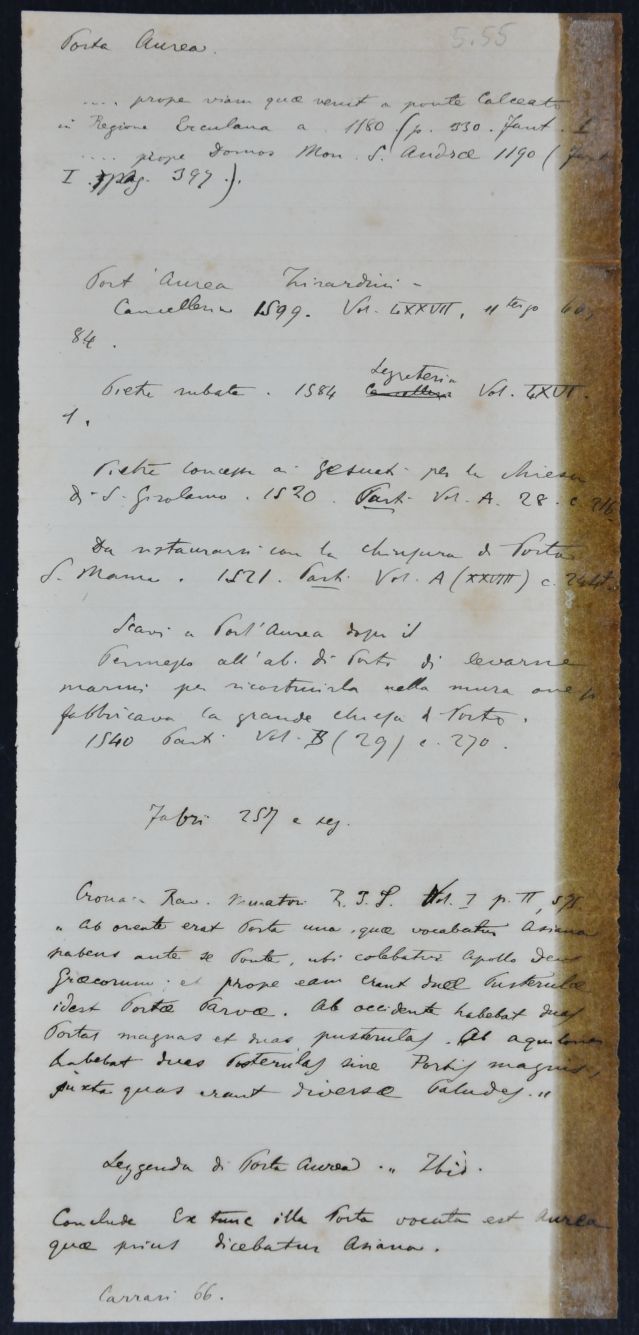 5.55
Porta Aurea.
.... prope viam quæ venit a ponte Calceato
in Regione Erculana a. 1180 (p. 330. Fant. I
.... prope Domos Mon. S. Andreæ 1190 (Fant
I pag. 397.).
Port'Aurea Zirardini -
Cancelleria 1599. Vol. LXXVII, 11 tergo 60,
84.
Pietre rubate. 1584 Segreteria Vol. LXVI.
1.
Pietre concesse ai Gesuati per la chiesa
di S. Girolamo. 1520. Parti Vol. A. 28. c 216
Da restaurarsi con la chiusura di Porta
S. Mama. 1521. Parti Vol. A (XXVIII) c. 244t.
Scavi a Port'Aurea dopo il
Permesso all'ab. di Porto di levarne
marmi per ricostruirla nella mura ove si
fabbricava la grande chiesa di Porto.
1540 Parti Vol. B (29) c. 270.
Fabri 257 e seg.
Cronaca Rav. Muratori R. I. S. Vol. I p. II, 575.
„ Ab oriente erat Porta una, quæ vocabatur Asiana
habens ante se Ponte, ubi colebatur Apollo Deus
Græcorum: et prope eam erant duæ Pusterulæ
idest Portæ Parvæ. Ab occidente habebat duas
Portas magnas et duas pusterulas. Ab aquilone
habebat duas Posterulas sine Portis magnis,
juxta quas erant diversæ Paludes. „
Leggenda di Porta Aurea. „ Ibid.
Conclude Ex tunc illa Porta vocata est Aurea
quæ prius dicebatur Asiana.
Carrari 66.